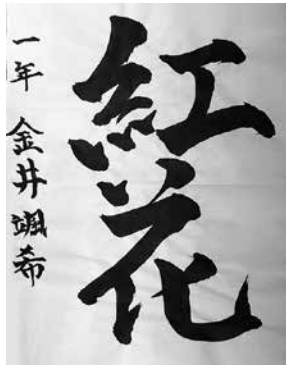 紅花
一年 金井颯希